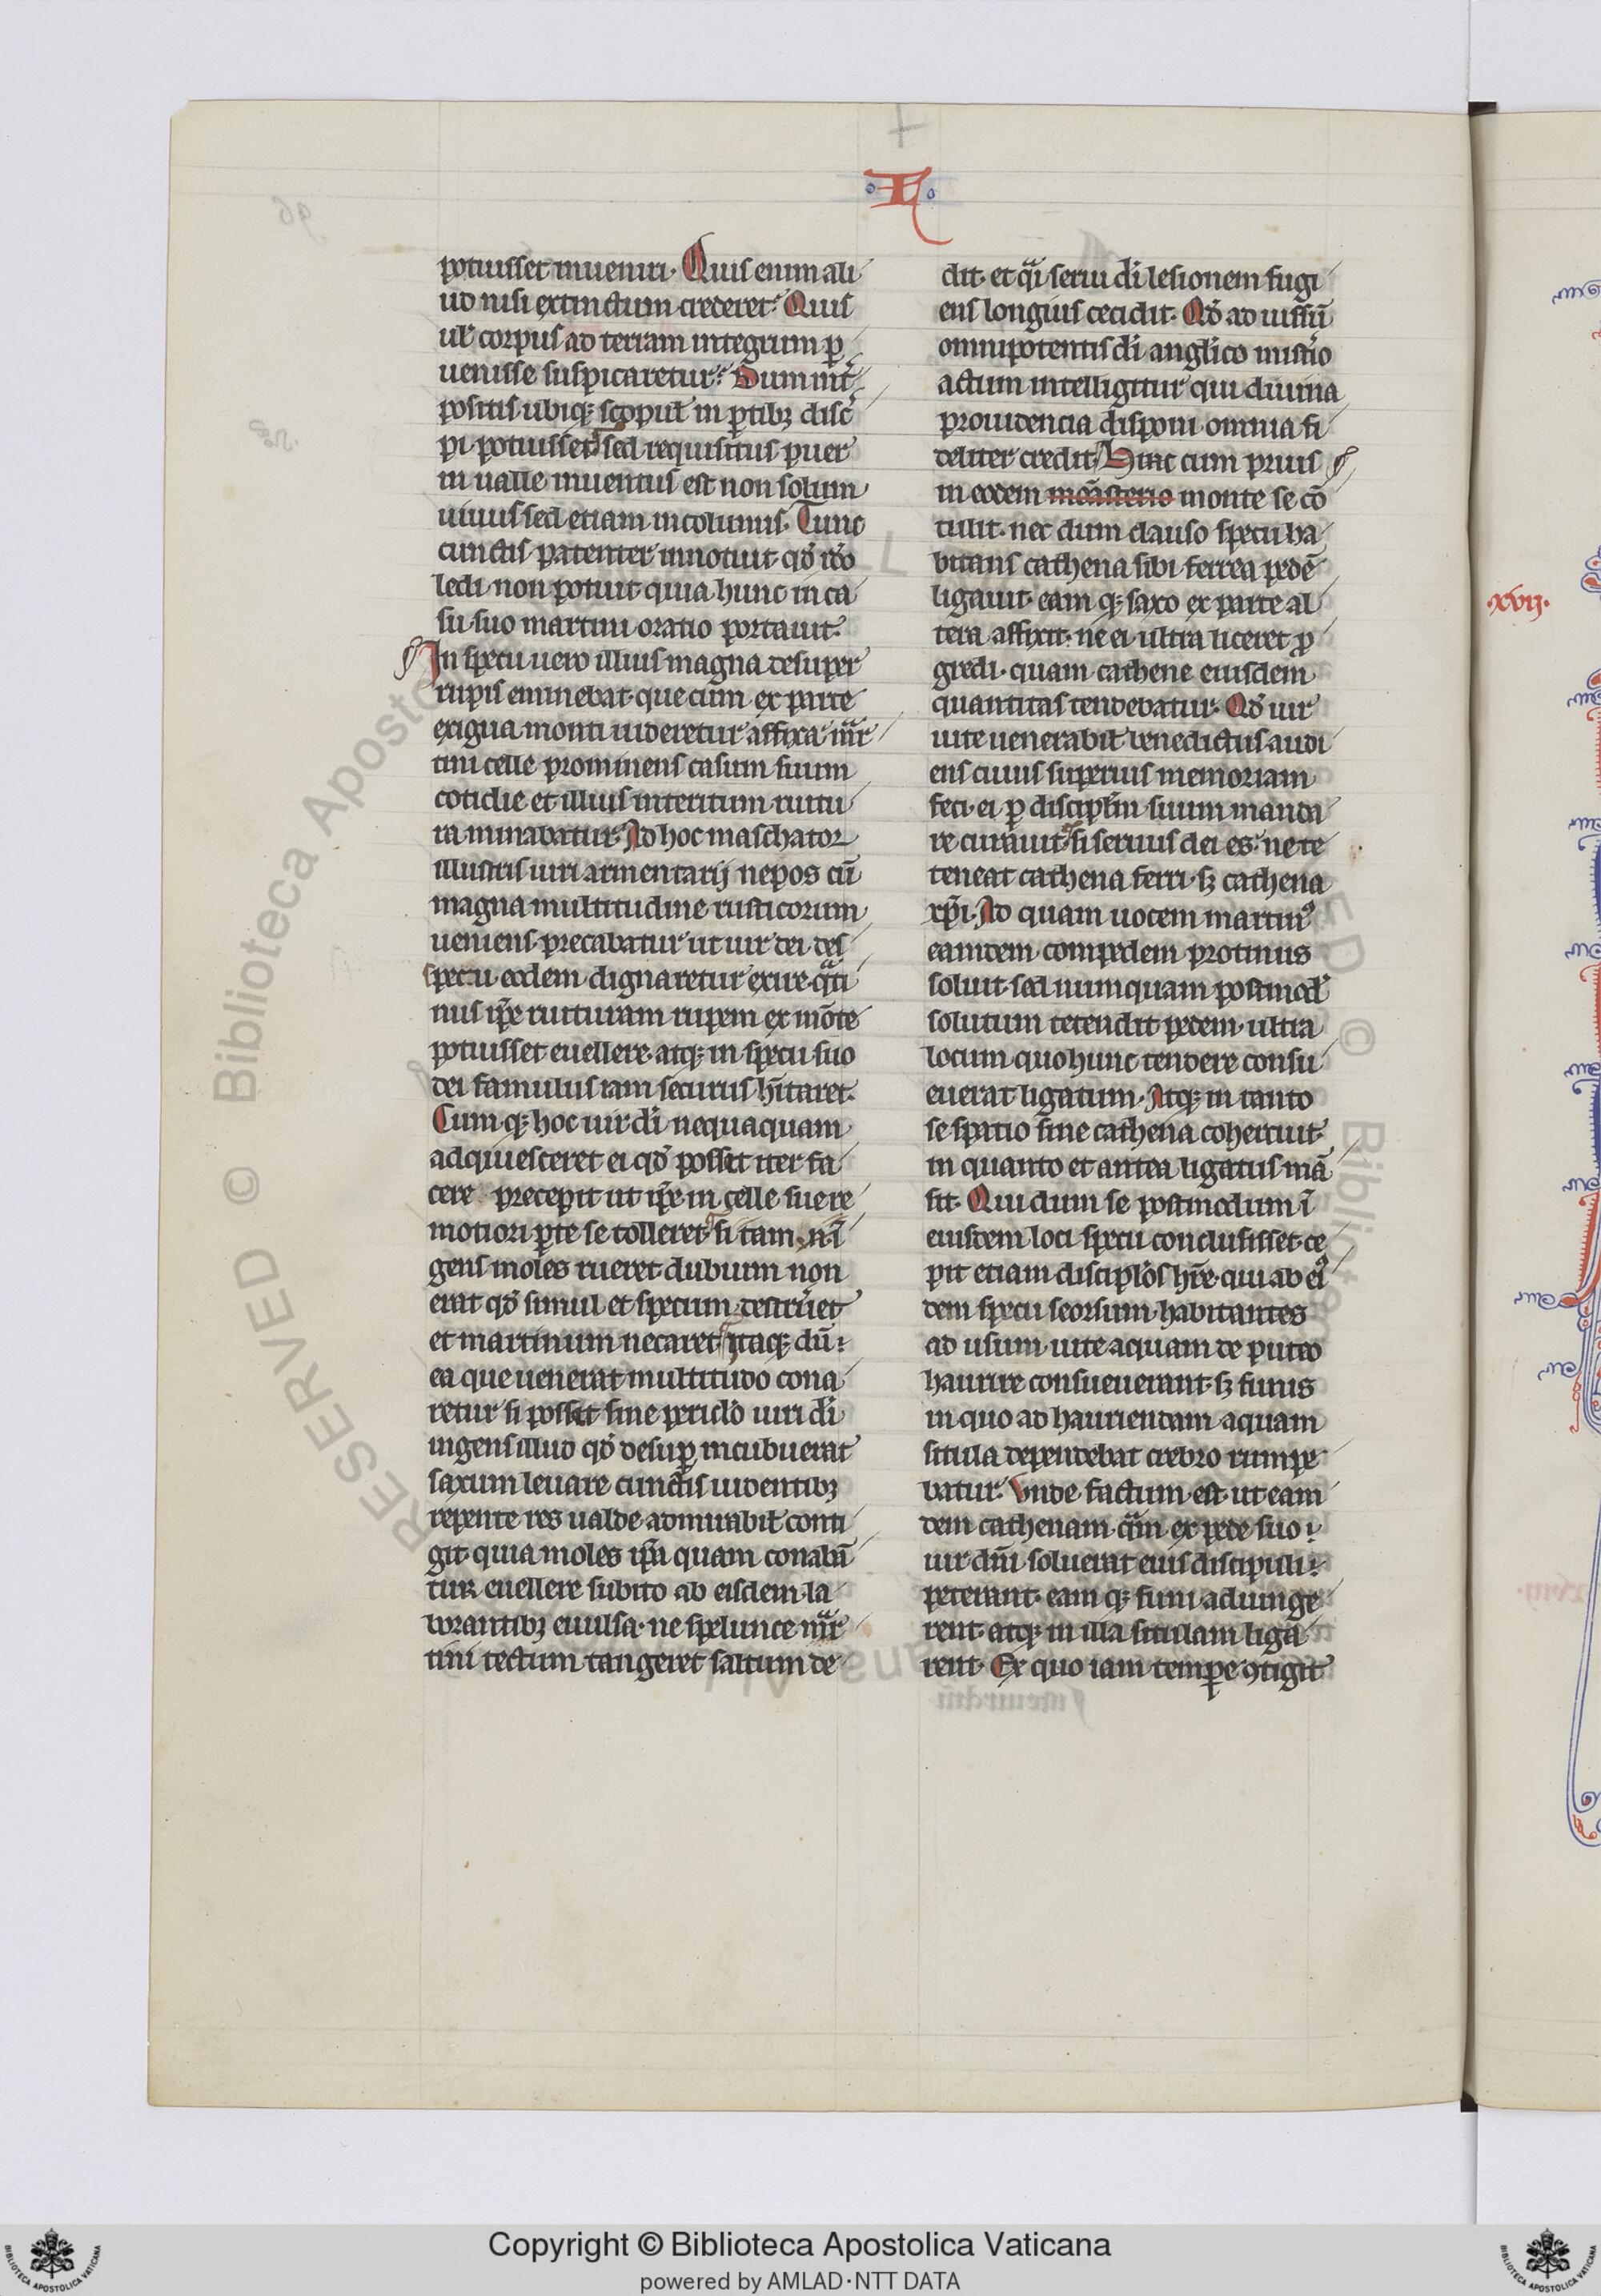 L
potuisset inueniri. Quis enim ali
ud nisi extinctum crederet? Quis
ul' corpus ad terram integrum ꝑ
uenisse suspicaretur? Dum int̾
positis ubiqꝫ scopul' in ꝑtibꝫ disc̾
pi potuisset. sed requisitus puer
in ualle inuentus est non solum
uiuus sed etiam incolumis. Tunc
cunctis patenter innotuit qd̾ iō
ledi non potuit quia hunc in ca
su suo martini oratio portauit.
In specu uero illius magna desuper
rupis eminebat. que cum ex parte
exigua monti uideretur affixa mr̃
tini celle prominens casum suum
cotidie et illius interitum ruitu
ra minabatur. Ad hoc maschator
illustris uiri armentarij nepos cū
magna multitudine rusticorum
ueniens precabatur ut uir dei des
specu eodem dignaretur exire. qͣti
nus ip̃e ruituram rupem ex mōte
potuisset euellere. atqꝫ in specu suo
dei famulus iam securus hītaret.
Cum qꝫ hoc uir di̾ nequaquam
adquiesceret ei qd̾ posset iter fa
cere precepit ut ip̃e in celle sue re
motiori ꝑte se tolleret. si tam̄ ī
gens moles rueret dubium non
erat qd̾ simul et specum destrueret
et martinum necaret. itaqꝫ dū
ea que uenerat multitudo cona
retur si posset sine periclo uiri di̾
ingens illud qd̾ desuꝑ incubuerat
saxum leuare cunctis uidentibꝫ
repente res ualde admirabil' conti
git. quia moles ip̃a quam conabā
tur euellere subito ab eisdem la
borantibꝫ euulsa. ne spelunce mr̃
tini tectum tangeret saltum de
dit. et qͣi serui di̾ lesionem fugi
ens longius cecidit. Qd̾ ad iussū
omnipotentis di̾ anglico mist̾io
actum intelligitur qui diuina
prouidencia disponi omnia fi
deliter credit. Hinc cum prius
in eodem mōasterio monte se cō
tulit. nec dum clauso specu ha
bitans cathena sibi ferrea pedē
ligauit. eam qꝫ saxo ex parte al
tera affixit. ne ei ultra liceret ꝓ
gredi. quam cathene eiusdem
quantitas tendebatur. Qd̾ uir
uite uenerabil' benedictus audi
ens cuius superius memoriam
feci. ei ꝑ discipl'm suum manda
re curauit. si seruus dei es. ne te
teneat cathena ferri. sꝫ cathena
xp̄i. Ad quam uocem martinꝰ
eamdem compedem protinus
soluit. sed numquam postmod̾
solutum tetendit pedem ultra
locum quo hunc tendere consu
euerat ligatum. Atqꝫ in tanto
se spatio sine cathena cohercuit
in quanto et antea ligatus mā
sit. Qui dum se postmodum ī
eiusdem loci specu conclusisset. ce
pit etiam discipl'os hr̄e. qui ab ei
dem specu seorsum habitantes
ad usum uite aquam de puteo
haurire consueuerant. sꝫ funis
in quo ad hauriendam aquam
situla dependebat crebro rumpe
batur. Vnde factum est ut eam
dem cathenam. qͣm ex pede suo
uir dn̄i soluerat eius discipuli
peterant. eam qꝫ funi adiunge
rent. atqꝫ in illa situlam liga
rent. Ex quo iam tempe ꝯtigit
.xvij.
Copyright © Biblioteca Apostolica Vaticana
powered by AMLAD·NTT DATA